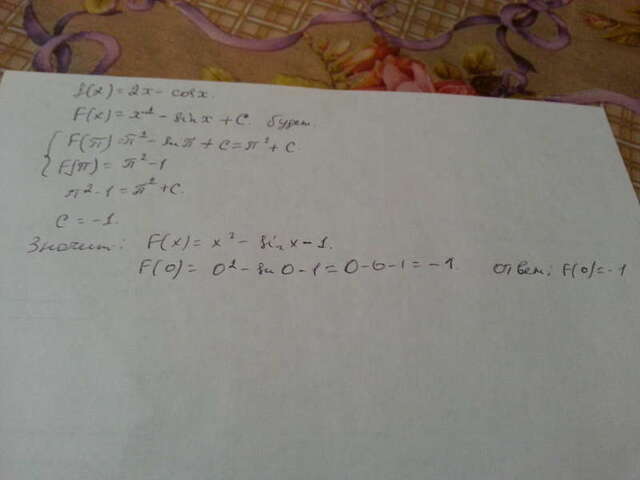 f(x) = 2x - cosx.
F(x) = x² - sinx + C. будет.
F(π) = π² - sinπ + C = π² + C.
F(π) = π² - 1
π² - 1 = π² + C.
C = -1.
Значит: F(x) = x² - sinx - 1.
F(0) = 0² - sin0 - 1 = 0 - 0 - 1 = -1. ответ: F(0) = -1